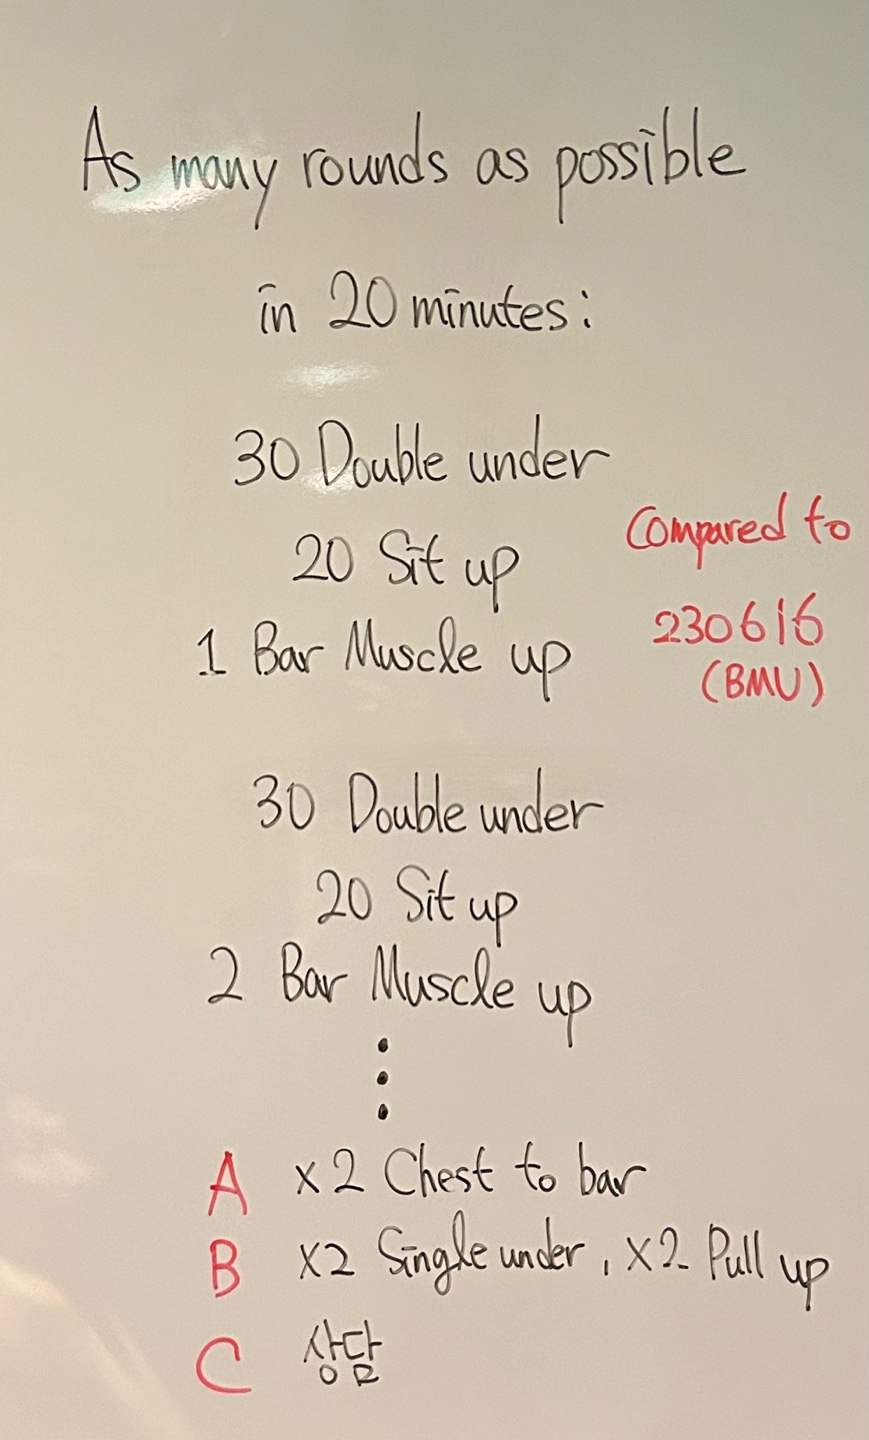 As many rounds as possible
in 20 minutes:
30 Double under
20 Sit up
1 Bar Muscle up
Compared to
230616
(BMU)
30 Double under
20 Sit up
2 Bar Muscle up
⋮
A x2 Chest to bar
B x2 Single under, x2 Pull up
C 상담